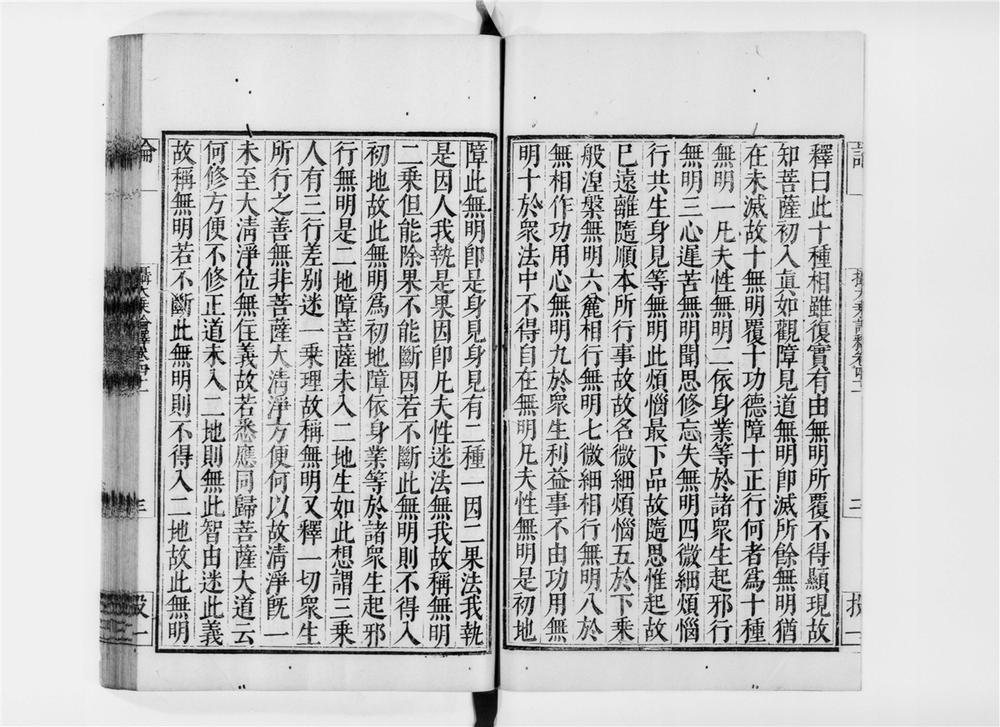 釋曰此十種相雖復實有由無明所覆不得顯現故
知菩薩初入眞如觀障見道無明卽滅所餘無明猶
在未滅故十無明覆十功德障十正行何者爲十種
無明一凡夫性無明二依身業等於諸衆生起邪行
無明三心遲苦無明聞思修忘失無明四微細煩惱
行共生身見等無明此煩惱最下品故隨思惟起故
已遠離隨順本所行事故故名微細煩惱五於下乘
般涅槃無明六麁相行無明七微細相行無明八於
無相作功用心無明九於衆生利益事不由功用無
明十於衆法中不得自在無明凡夫性無明是初地
障此無明卽是身見身見有二種一因二果法我執
是因人我執是果因卽凡夫性迷法無我故稱無明
二乘但能除果不能斷因若不斷此無明則不得入
初地故此無明爲初地障依身業等於諸衆生起邪
行無明是二地障菩薩未入二地生如此想謂三乘
人有三行差别迷一乘理故稱無明又釋一切衆生
所行之善無非菩薩大清淨方便何以故清淨旣一
未至大清淨位無住義故若悉應同歸菩薩大道云
何修方便不修正道未入二地則無此智由迷此義
故稱無明若不斷此無明則不得入二地故此無明